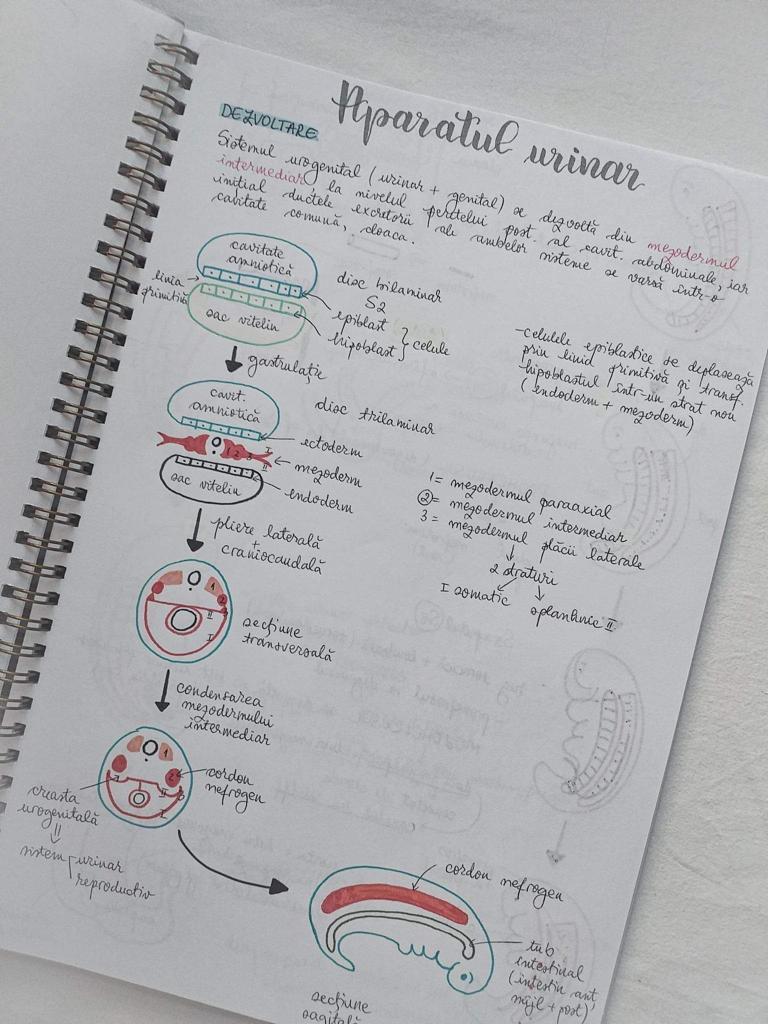 Aparatul urinar
DEZVOLTARE
Sistemul urogenital (urinar + genital) se dezvoltă din mezodermul
intermediar la nivelul peretelui post. al cavit. abdominale, iar
initial ductele excretorii ale ambelor sisteme se varsă intr-o
cavitate comună, cloaca.
cavitate
amniotică
linia
primitivă
sac vitelin
disc bilaminar
S2
epiblast
hipoblast } celule
-celulele epiblastice se deplasează
prin linia primitivă și transf.
hipoblastul într-un strat nou
(endoderm + mezoderm)
gastrulație
cavit.
amniotică
disc trilaminar
1 2 3 I
II
ectoderm
mezoderm
endoderm
sac vitelin
1 = mezodermul paraaxial
2 = mezodermul intermediar
3 = mezodermul plăcii laterale
2 straturi
I somatic
splanhnic II
pliere laterală
+
craniocaudală
1
2
II
I
secțiune
transversală
condensarea
mezodermului
intermediar
1
2
II
I
cordon
nefrogen
creasta
urogenitală
sistem urinar
reproductiv
cordon nefrogen
tub
intestinal
(intestin ant,
mijl + post)
secțiune
sagitală